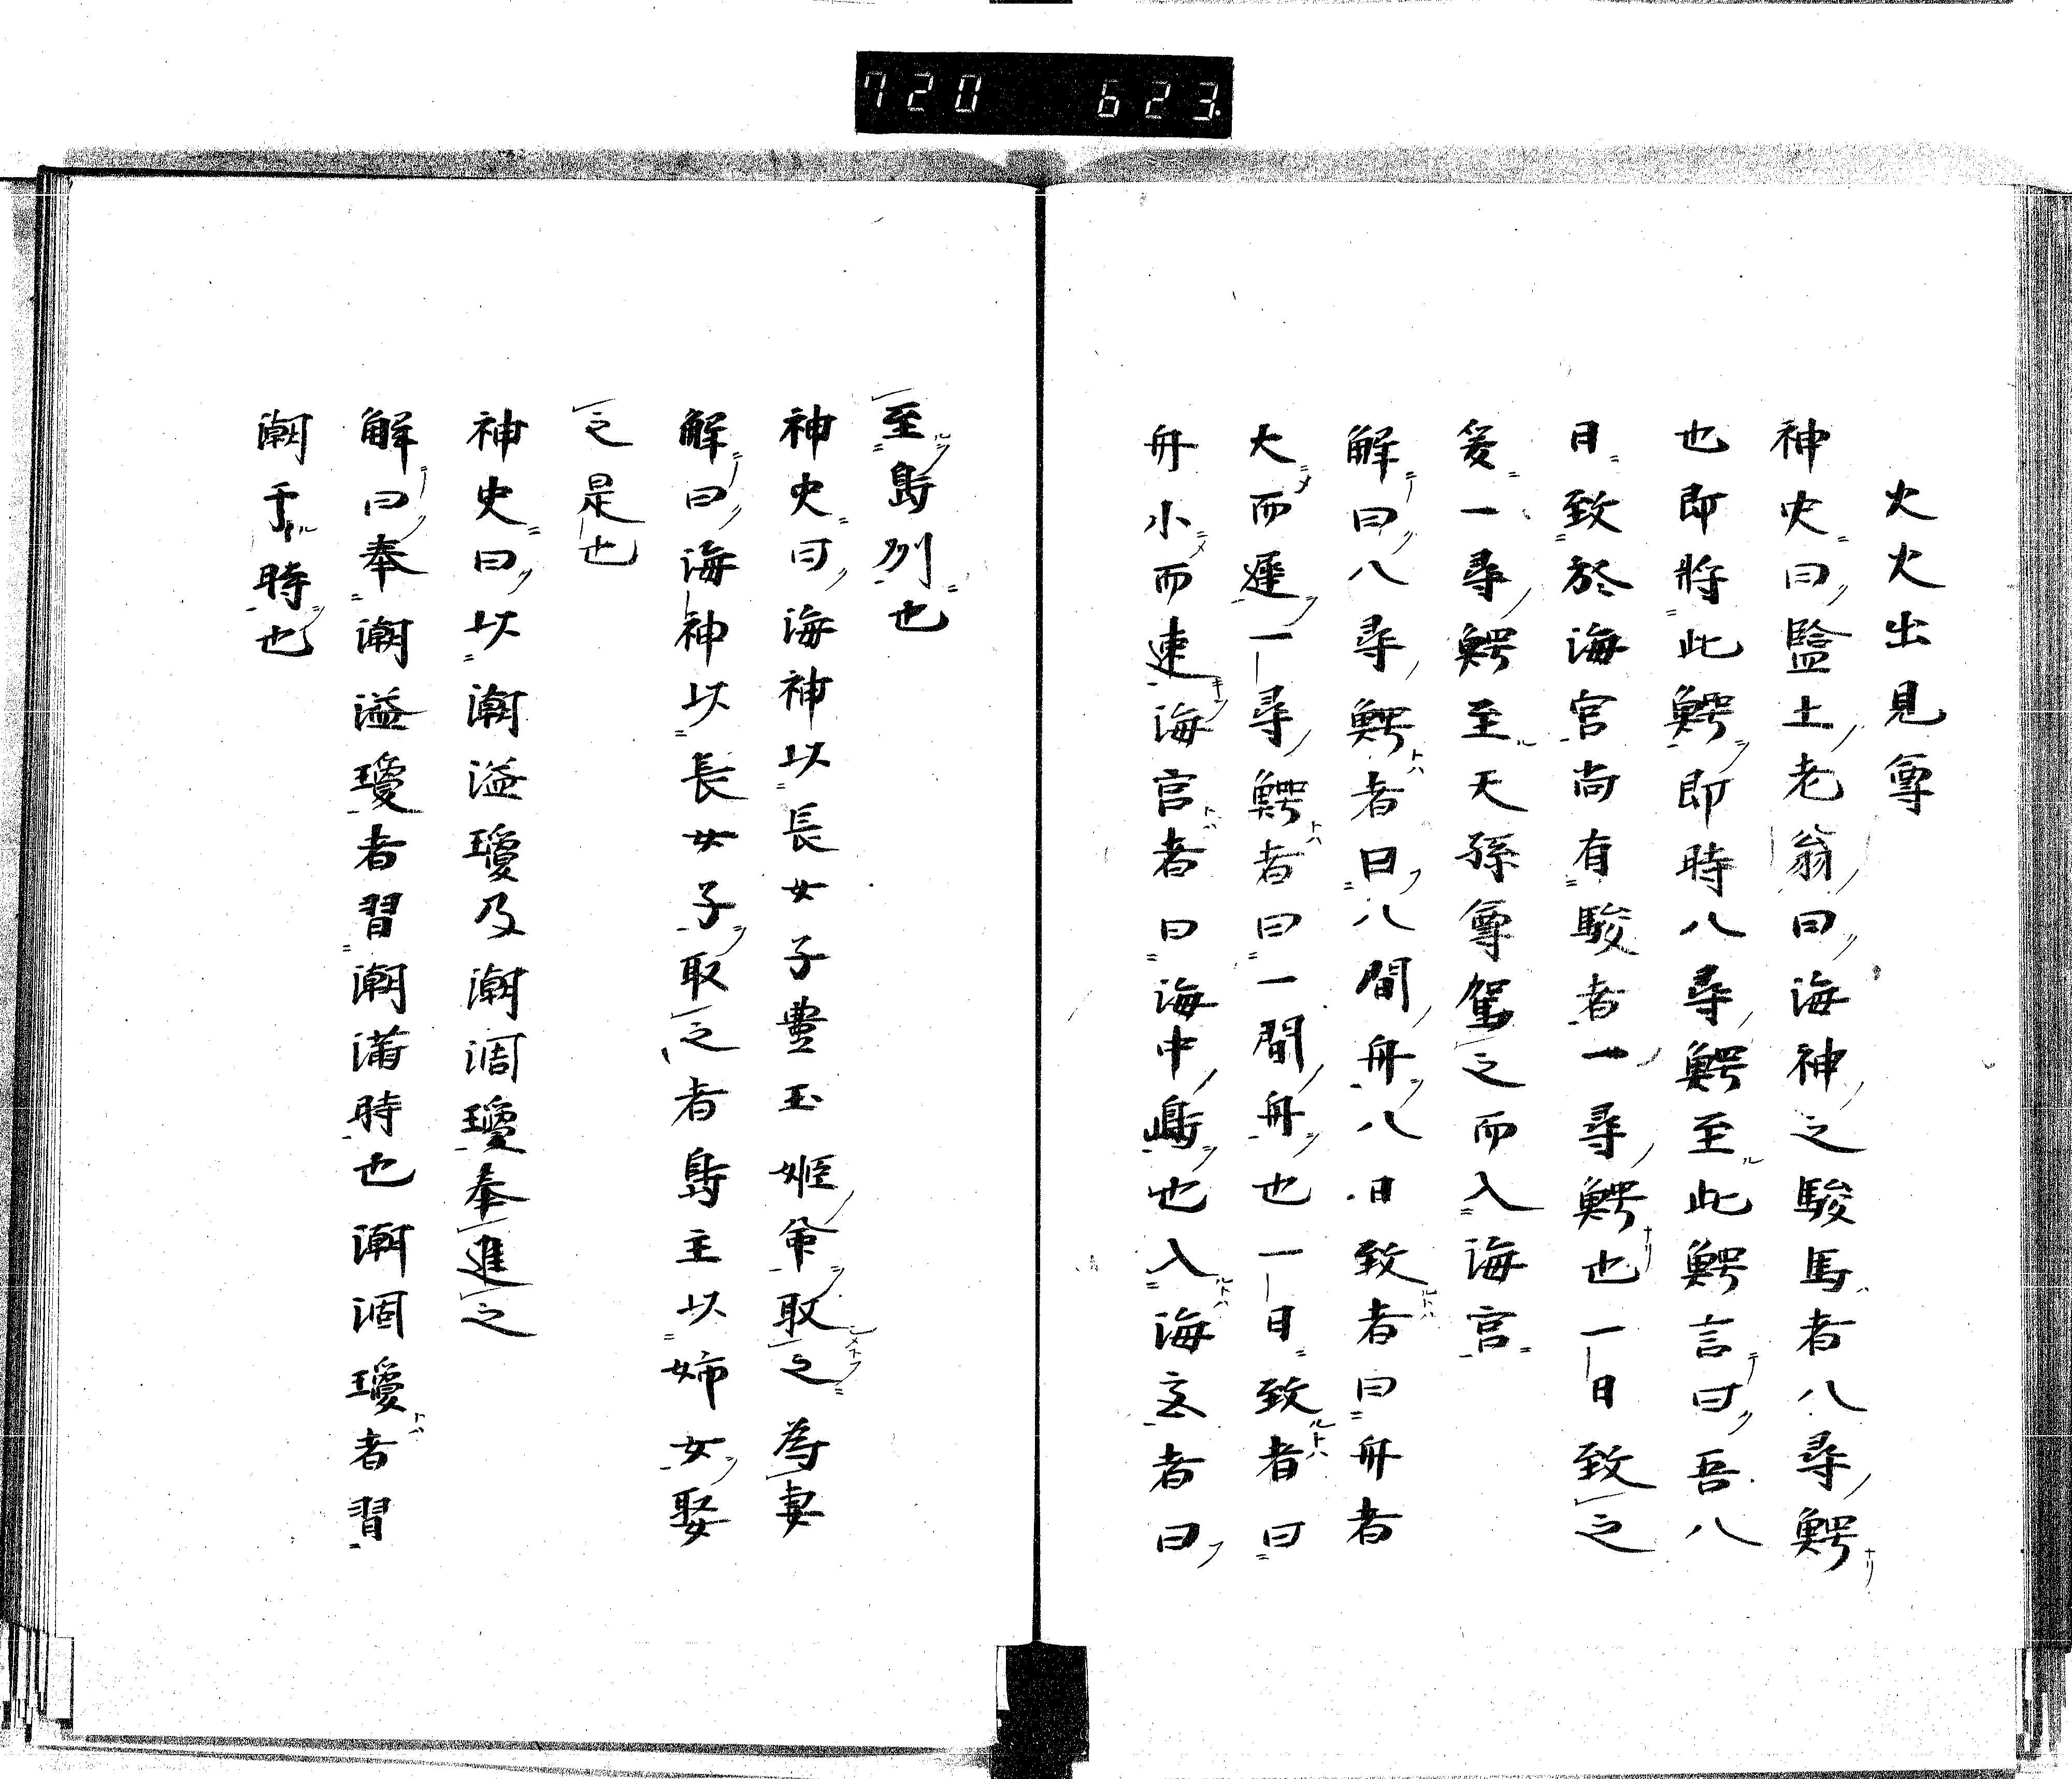 720 623
火火出見尊
神史曰塩土老翁曰海神之駿馬者八尋鰐
也即將此鰐即時八尋鰐至此鰐言曰吾八
日致於海宮尚有駿者一尋鰐也一日致之
爰一尋鰐至天孫尊駕之而入海宮
解曰八尋鰐者曰八間舟八日致者曰舟者
大而遲一尋鰐者曰一間舟也一日致者曰
舟小而速海宮者曰海中嶋也入海玄者曰
至島列也
神史曰海神以長女子豊玉姬命取之為妻
解曰海神以長女子取之者島主以姉女娶
之是也
神史曰以潮溢瓊及潮涸瓊奉進之
解曰奉潮溢瓊者習潮満時也潮涸瓊者習
潮于時也